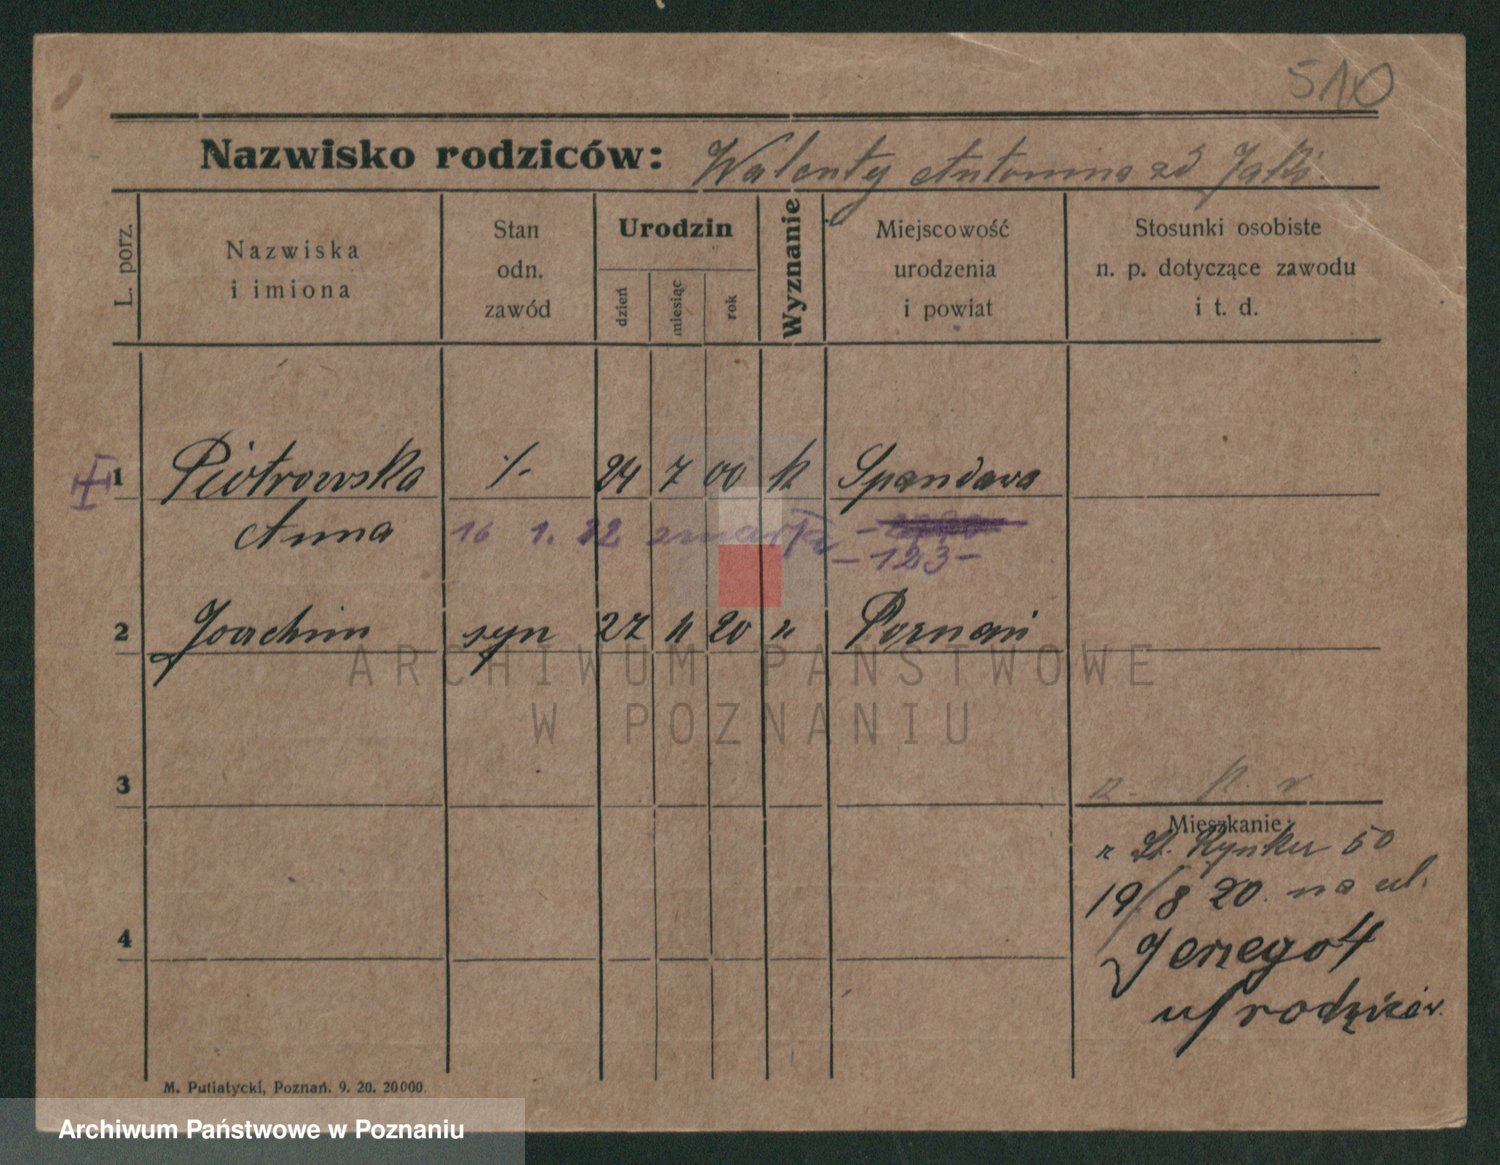 510
Nazwisko rodziców: Walenty Antonina zd Jaki
L. porz.
Nazwiska i imiona
Stan odn. zawód
Urodzin
dzień
miesiąc
rok
Wyznanie
Miejscowość urodzenia i powiat
Stosunki osobiste n. p. dotyczące zawodu i t. d.
1 Piotrowska ./- 24 7 00 k Spandawa
Anna 16 1. 22 zmarła
-123-
2 Joachim syn 27 11 20 " Poznań
ARCHIWUM PAŃSTWOWE
W POZNANIU
3
Mieszkanie:
St. Rynku 50
19/8 20. na ul.
Jerzego 4
u/ rodziców.
4
M. Putiatycki, Poznań. 9. 20. 20000.
Archiwum Państwowe w Poznaniu